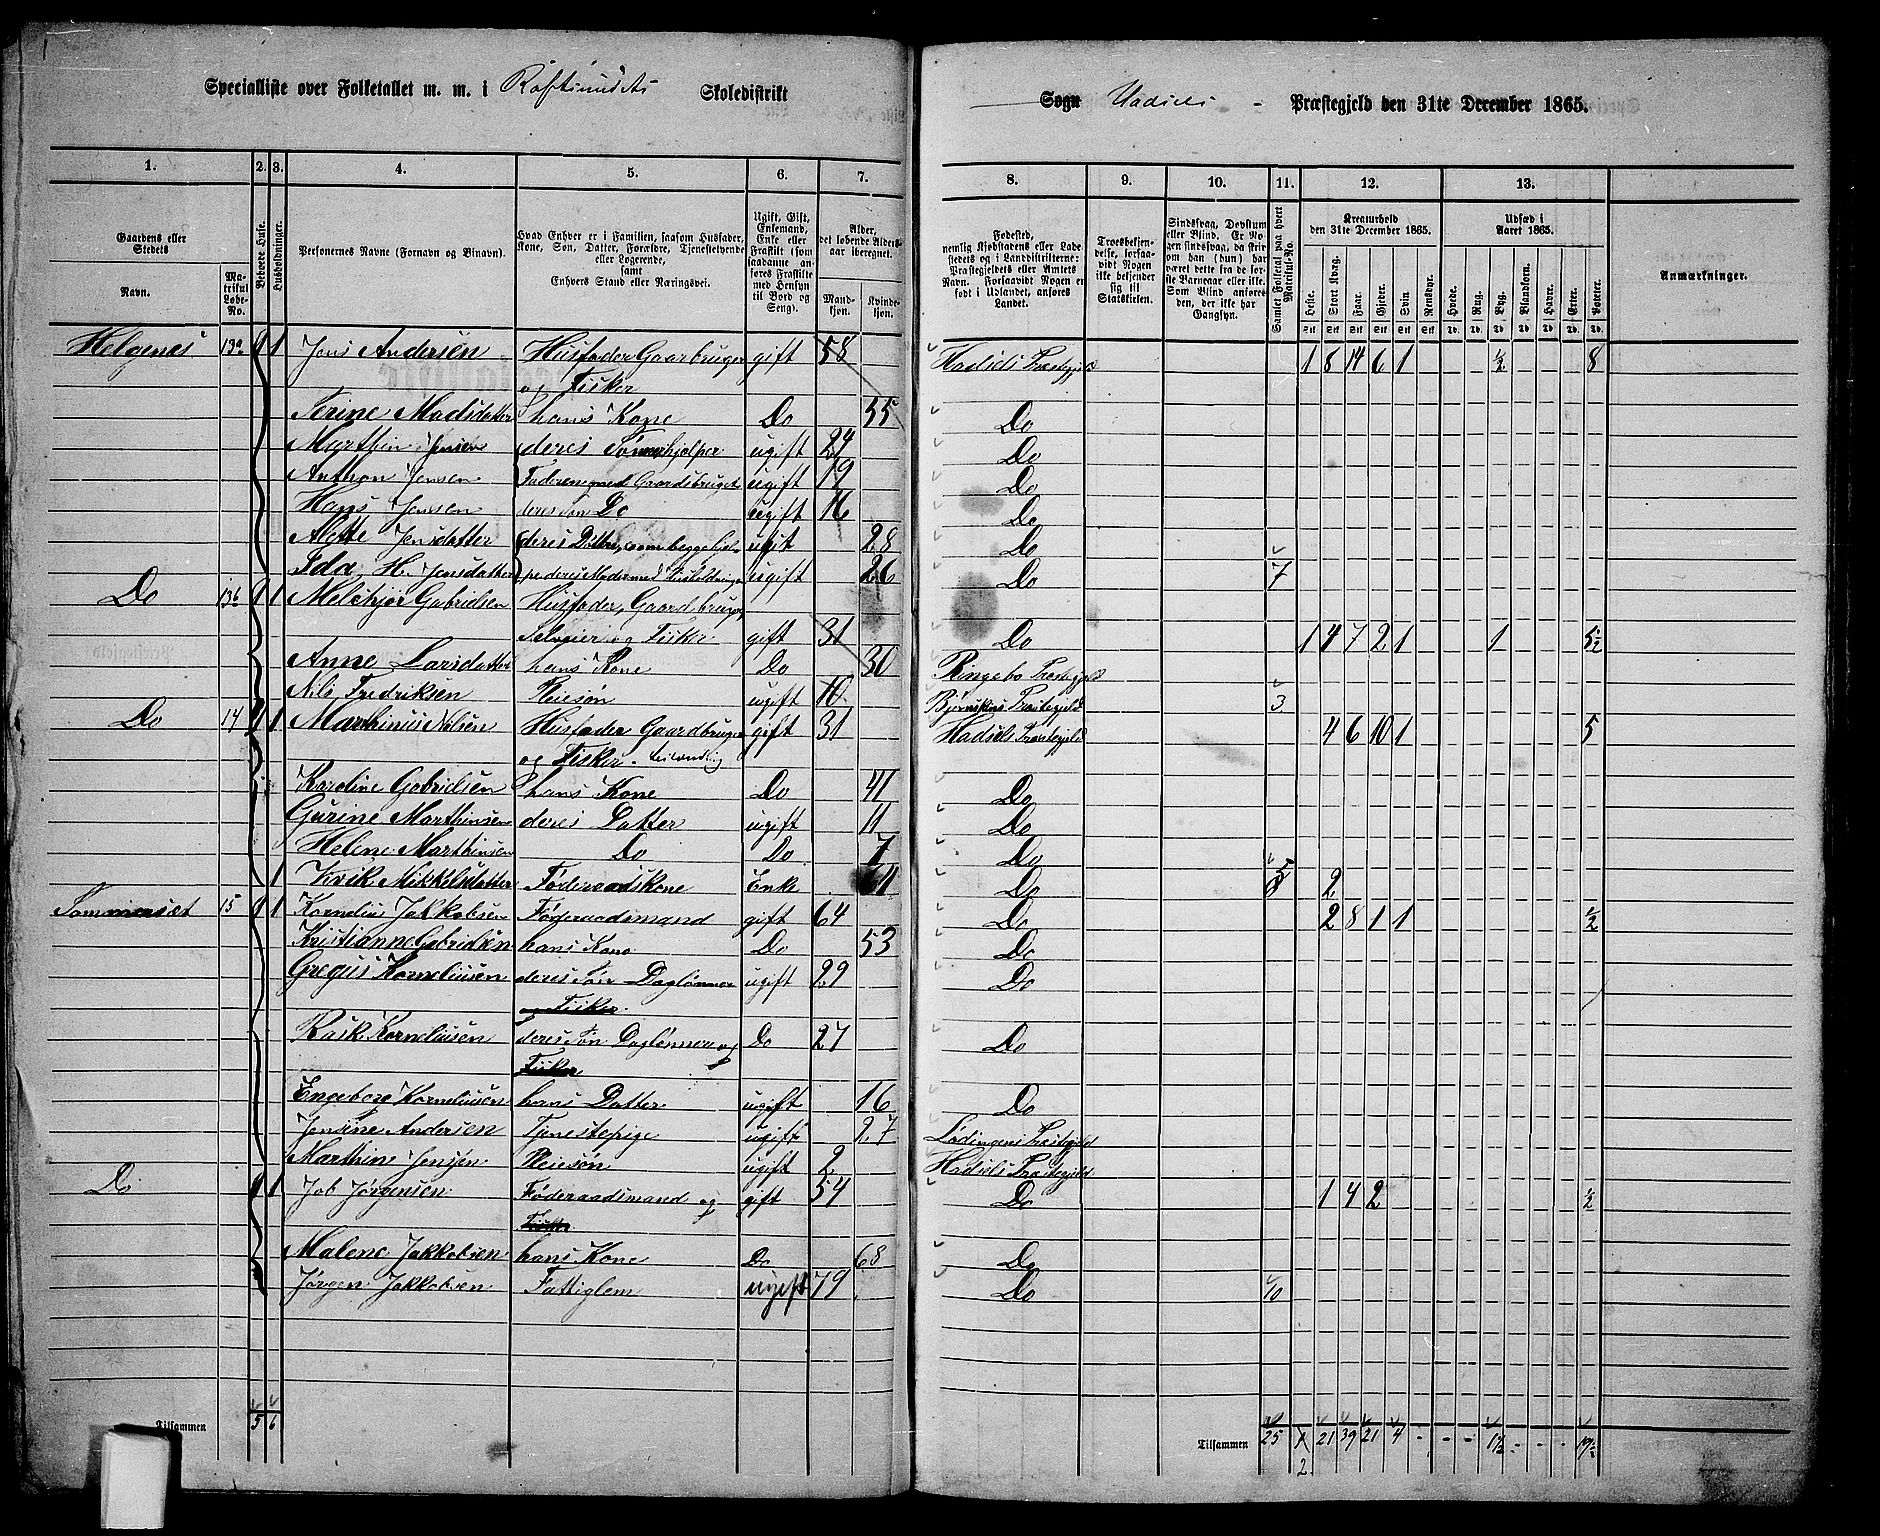 Specialliste over Folketallet m. m. i Raftsundets Skoledistrikt
Sogn Hadsels Præstegjeld den 31te December 1865.
1. 2. 3. 4. 5. 6. 7.
8. 9. 10. 11. 12. 13.
Gaardens eller Stedets
Navn.
Matrikul Løbe-No.
Beboede Huse.
Husholdninger.
Personernes Navne (Fornavn og Binavn).
Hvad Enhver er i Familien, saasom Husfader, Kone, Søn, Datter, Forældre, Tjenestetyende eller Logerende, samt Enhvers Stand eller Næringsvei.
Ugift, Gift, Enkemand, Enke eller Fraskilt (som saadanne anføres Fraskilte med Hensyn til Bord og Seng).
Alder, det løbende Aldersaar iberegnet.
Mandkjøn. Kvindekjøn.
Fødested, nemlig Kjøbstadens eller Ladestedets og i Landdistrikterne: Præstegjeldets eller Amtets Navn. Forsaavidt Nogen er født i Udlandet, anføres Landet.
Troesbekjendelse, forsaavidt Nogen ikke bekjender sig til Statskirken.
Sindssvag, Døvstum eller Blind. Er Nogen sindssvag, da skrives om han (hun) har været dette fra de første Barneaar eller ikke. Som Blind anføres den, der ikke har Gangsyn.
Samlet Folketal paa hvert Matrikul-No.
Kreaturhold den 31te December 1865.
Heste. Stort Kvæg. Faar. Gjeder. Svin. Rensdyr.
Udsæd i Aaret 1865.
Hvede. Rug. Byg. Blandkorn. Havre. Erter. Poteter.
Anmærkninger.
Helgenes 13a 1 1 Jens Andersen Husfader Gaarbruger gift 58 Hadsels Præstegjeld 1 8 14 6 1 ½ 8
og Fisker
Serine Madsdatter hans Kone Do 55 Do
Marthin Jensen deres Søn ugift 24 Do
Anthon Jensen Faderen med Gaardsbruget ugift 19 Do
Hans Jensen deres Søn Do ugift 16 Do
Alette Jensdatter deres 28 Do
Ida H. Jensdatter ugift 26 Do 7
Do 13b 1 1 Melchjor Gabrielsen Husfader, Gaardbruger,
Selveier og Fisker gift 31 Do 1 4 7 2 1 1 5½
Anne Larsdatter hans Kone Do 30 Ringebo Præstegjeld
Nils Fredriksen Pleiesøn ugift 10 Præstegjeld 3
Do 14 1 1 Marthinus Nilsen Husfader Gaardbruger gift 31 Hadsels Præstegjeld 4 6 10 1 5
og Fisker
Karoline Gabrielsen hans Kone Do 41 Do
Gurine Marthinsen deres Datter ugift 11 Do
Helene Marthinsen Do Do 7 Do 5
1 Mikkelsdatter Føderaadskone Enke Do 2
Sommerset 15 1 1 Kornelius Jakkobsen Føderaadsmand gift 64 Do 2 8 1 1 ½
Kristianne Gabrielsen hans Kone Do 53 Do
Gregus Korneliusen deres Søn Daglønner ugift 29 Do
og Fisker.
Rask Korneliusen deres Søn Daglønner og Do 27 Do
Fisker
Engeborg Korneliusen hans Datter ugift 16 Do
Jensine Andersen Tjenestepige ugift 27 Lødingens Præstegjeld
Marthin Jensen. Pleiesøn ugift 2 Hadsels Præstegjeld
Do 1 1 Job Jørgensen Føderaadsmand og gift 54 Do 1 4 2 ½
Fisker
Malene Jakkobsen hans Kone Do 68 Do
Jørgen Jakkobsen Fattiglem ugift 79 Do 10
Tilsammen 5 6
Tilsammen 25 2 21 39 21 4 - - - 1½ - - - 19½